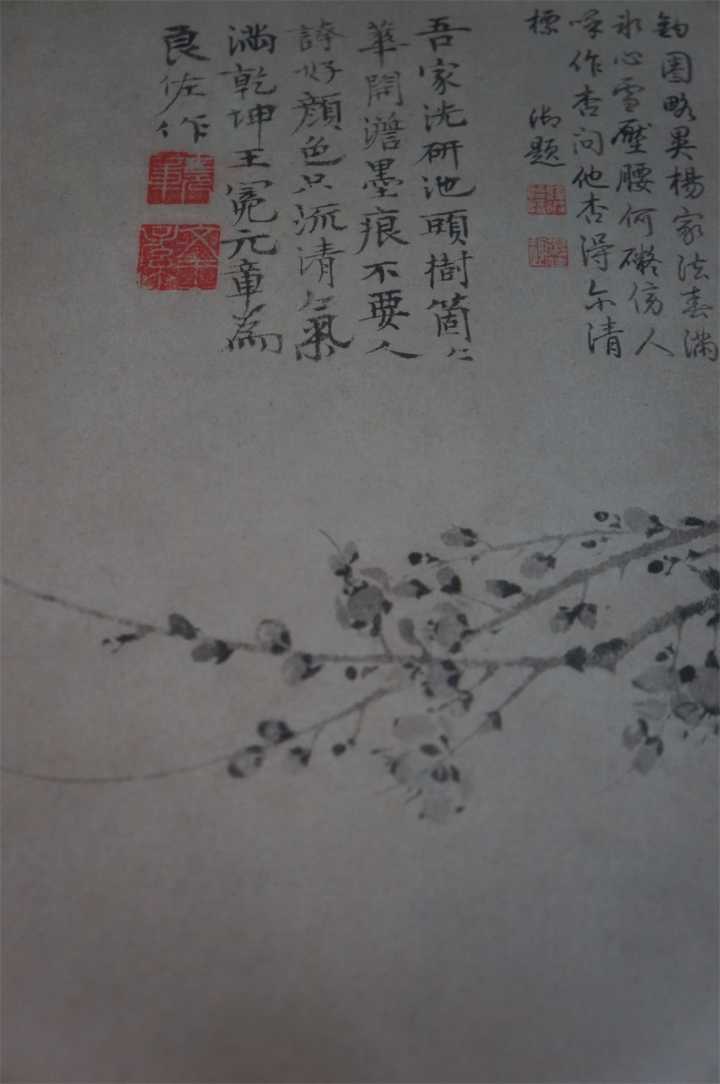 鈎圈略異楊家法春滿
冰心雪壓腰何礙傍人
呼作杏問他杏得尒清
標 御題
吾家洗研池頭樹箇〻
華開澹墨痕不要人
誇好顏色只流清氣
滿乾坤王冕元章為
良佐作